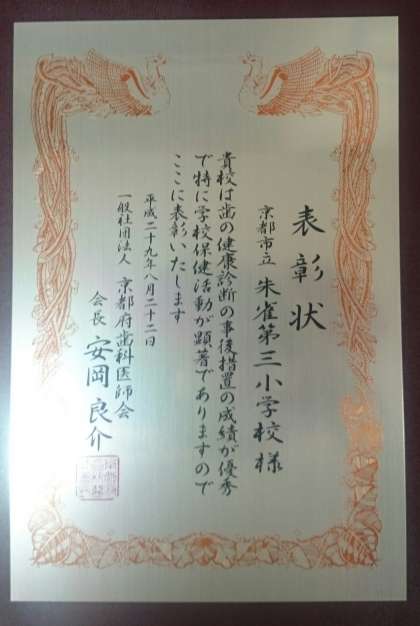 表彰状
京都市立 朱雀第三小学校様
貴校は歯の健康診断の事後措置の成績が優秀
で特に学校保健活動が顕著でありますので
ここに表彰いたします
平成二十九年八月二十二日
一般社団法人 京都府歯科医師会
会長 安岡良介